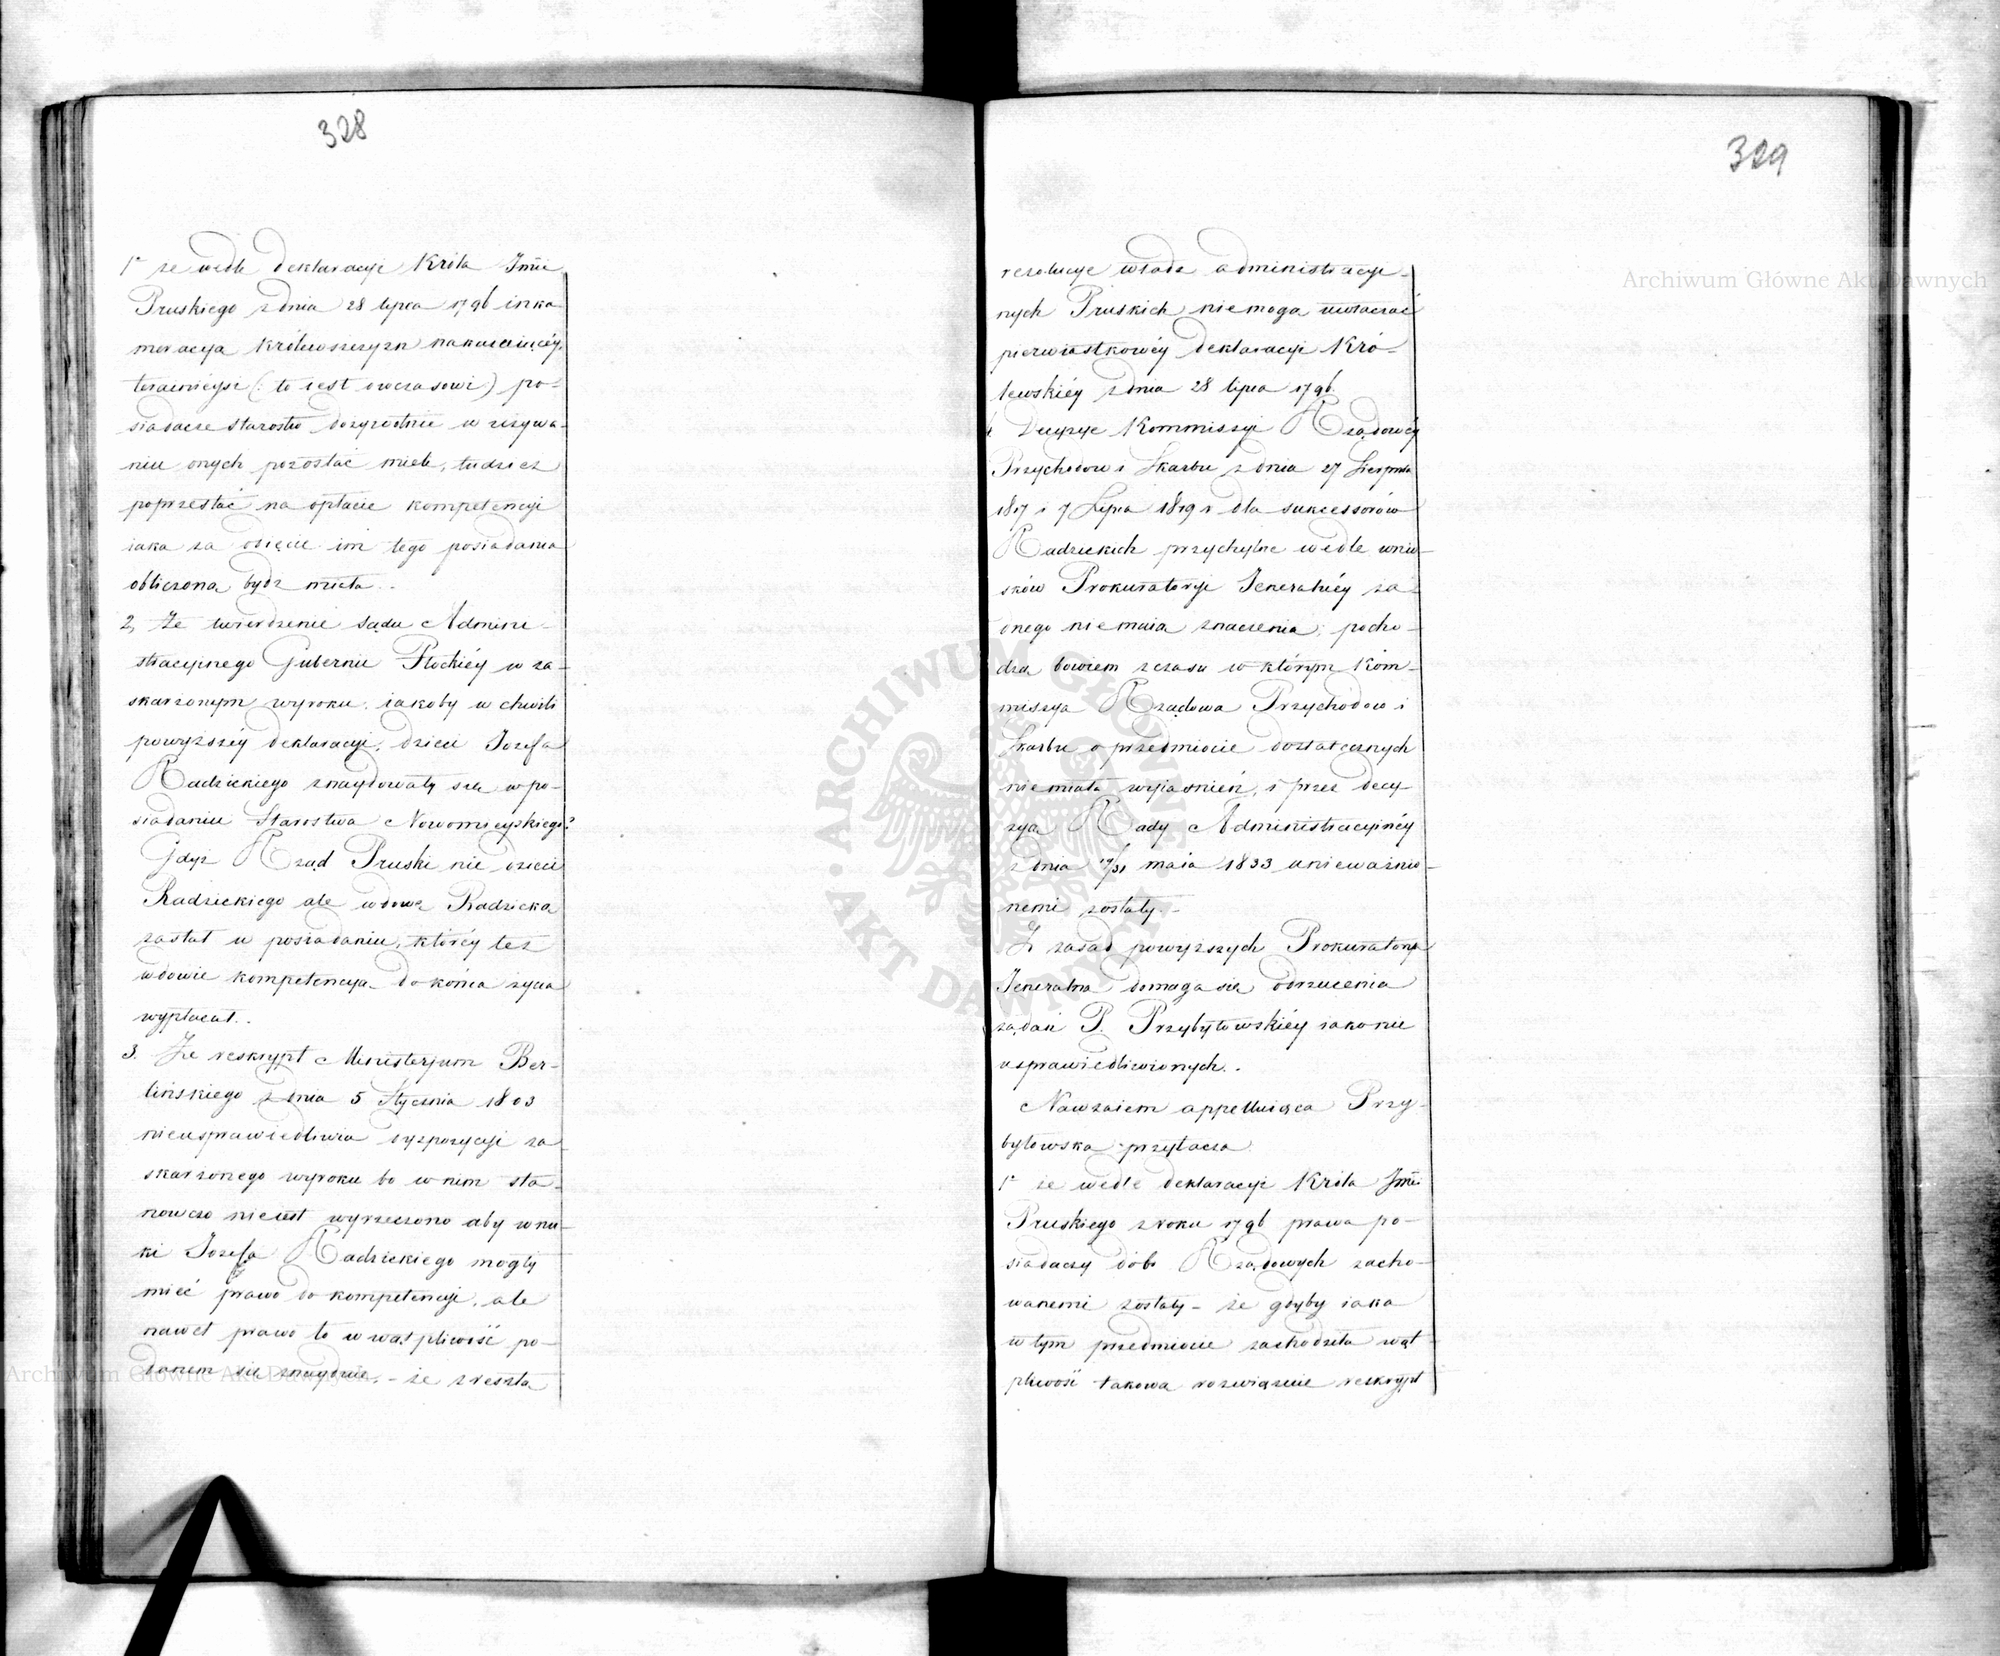 328
1° że wedle deklaracyi Króla Jmci
Pruskiego z dnia 28 lipca 1796 inka
meracya Królewszczyzn nakazuiącéy,
teraźnieysi (: to iest owczasowi) po-
siadacze Starostw dożywotnie w używa-
niu onych pozostać mieli, tudzież
poprzestać na opłacie kompetencyi
iaka za odięcie im tego posiadania
obliczona bydź miała.-
2, Że twierdzenie Sądu Admini-
stracyinego Gubernii Płockiéy w za-
skarżonym wyroku, iakoby w chwili
powyższéy deklaracyi, dzieci Jozefa
Radzickiego znaydowały się w po-
siadaniu Starostwa Nowomieyskiego?
Gdyż Rząd Pruski nie dzieci
Radzickiego ale wdowę Radzicką
zastał w posiadaniu, któréy też
wdowie kompetencya do końca życia
wypłacał.-
3. Że reskrypt Ministerjum Ber-
lińskiego z dnia 5 Stycznia 1803
nieusprawiedliwia dyspozycyi za-
skarżonego wyroku bo w nim sta-
nowczo nieiest wyrzeczono aby wnu-
ki Jozefa Radzickiego mogły
mieć prawo do kompetencyi, ale
nawet prawo to w wątpliwość po-
danem się znayduie, - że zresztą
329
rezolucye władz administracyi-
nych Pruskich niemogą uwłaczać
pierwiastkowéy deklaracyi Kró-
lewskiéy z dnia 28 lipca 1796.
Decyzye Kommissyi Rządowéy
Przychodow i Skarbu z dnia 27 Sierpnia
1817 i 7 Lipca 1819 r dla sukcessorów
Radzickich przychylne wedle wnio-
sków Prokuratoryi Jeneralnéy ża-
dnego niemaią znaczenia, pocho-
dzą bowiem z czasu w którym Kom-
missya Rządowa Przychodow i
Skarbu o przedmiocie dostatecznych
niemiała wyiaśnień, i przez decy-
zyą Rady Administracyinéy
z dnia 19/31 maia 1833 unieważnio-
nemi zostały.-
Z zasad powyższych Prokuratorya
Jeneralna domaga się odrzucenia
żądań P. Przybyłowskiéy iako nie
usprawiedliwionych.-
Nawzaiem appelluiąca Przy-
byłowska przytacza
1° że wedle deklaracyi Króla Jmci
Pruskiego z roku 1796 prawa po-
siadaczy dobr Rządowych zacho-
wanemi zostały - że gdyby iaka
w tym przedmiocie zachodziła wąt-
pliwość takowa rozwiąznie reskrypt
Archiwum Główne Akt Dawnych
Archiwum Główne Akt Dawnych
· ARCHIWUM GŁÓWNE · AKT DAWNYCH